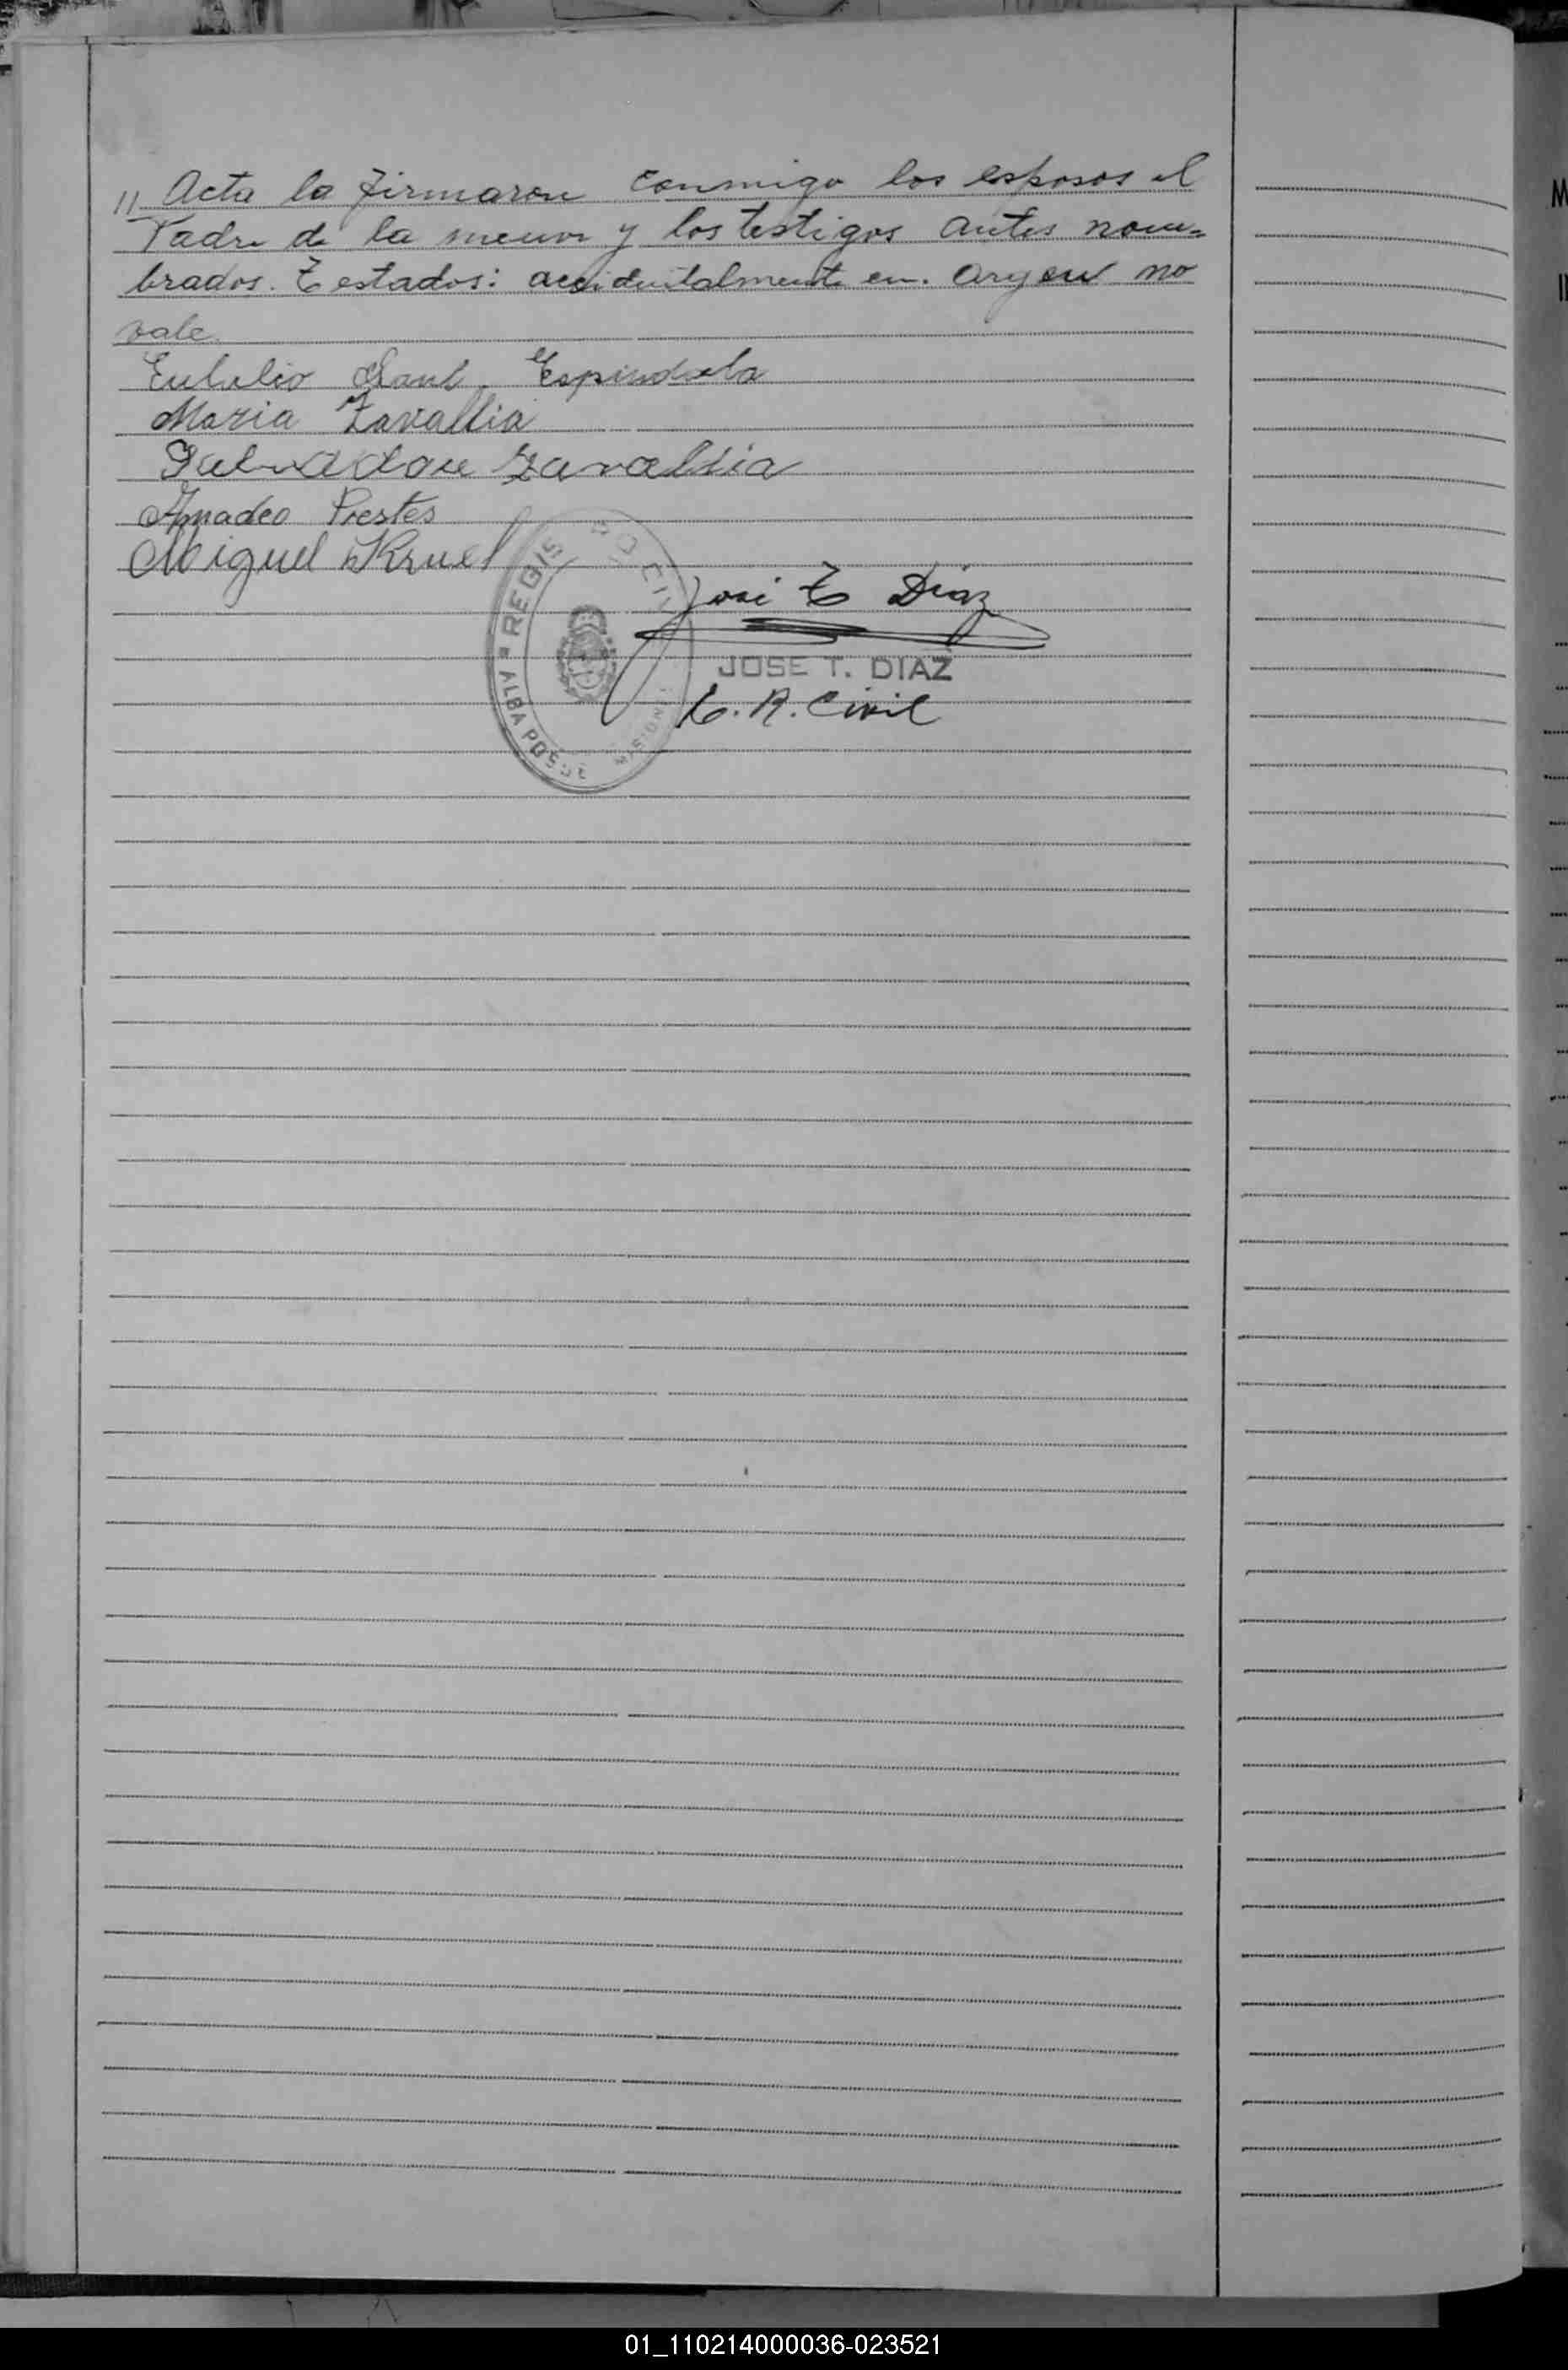 " Acta la firmaron conmigo los esposos el
Padre de la menor y los testigos antes nom=
brados. Testados: accidentalmente en. Argen no
vale.
Eulalio Saul Espindola
Maria Zavallia
Salvador Zavallia
Amadeo Prestes
Miguel Kruel
REGISTRO CIVIL
ALBA POSSE MISIONES
José T Diaz
JOSE T. DIAZ
E. R. Civil
01_110214000036-023521